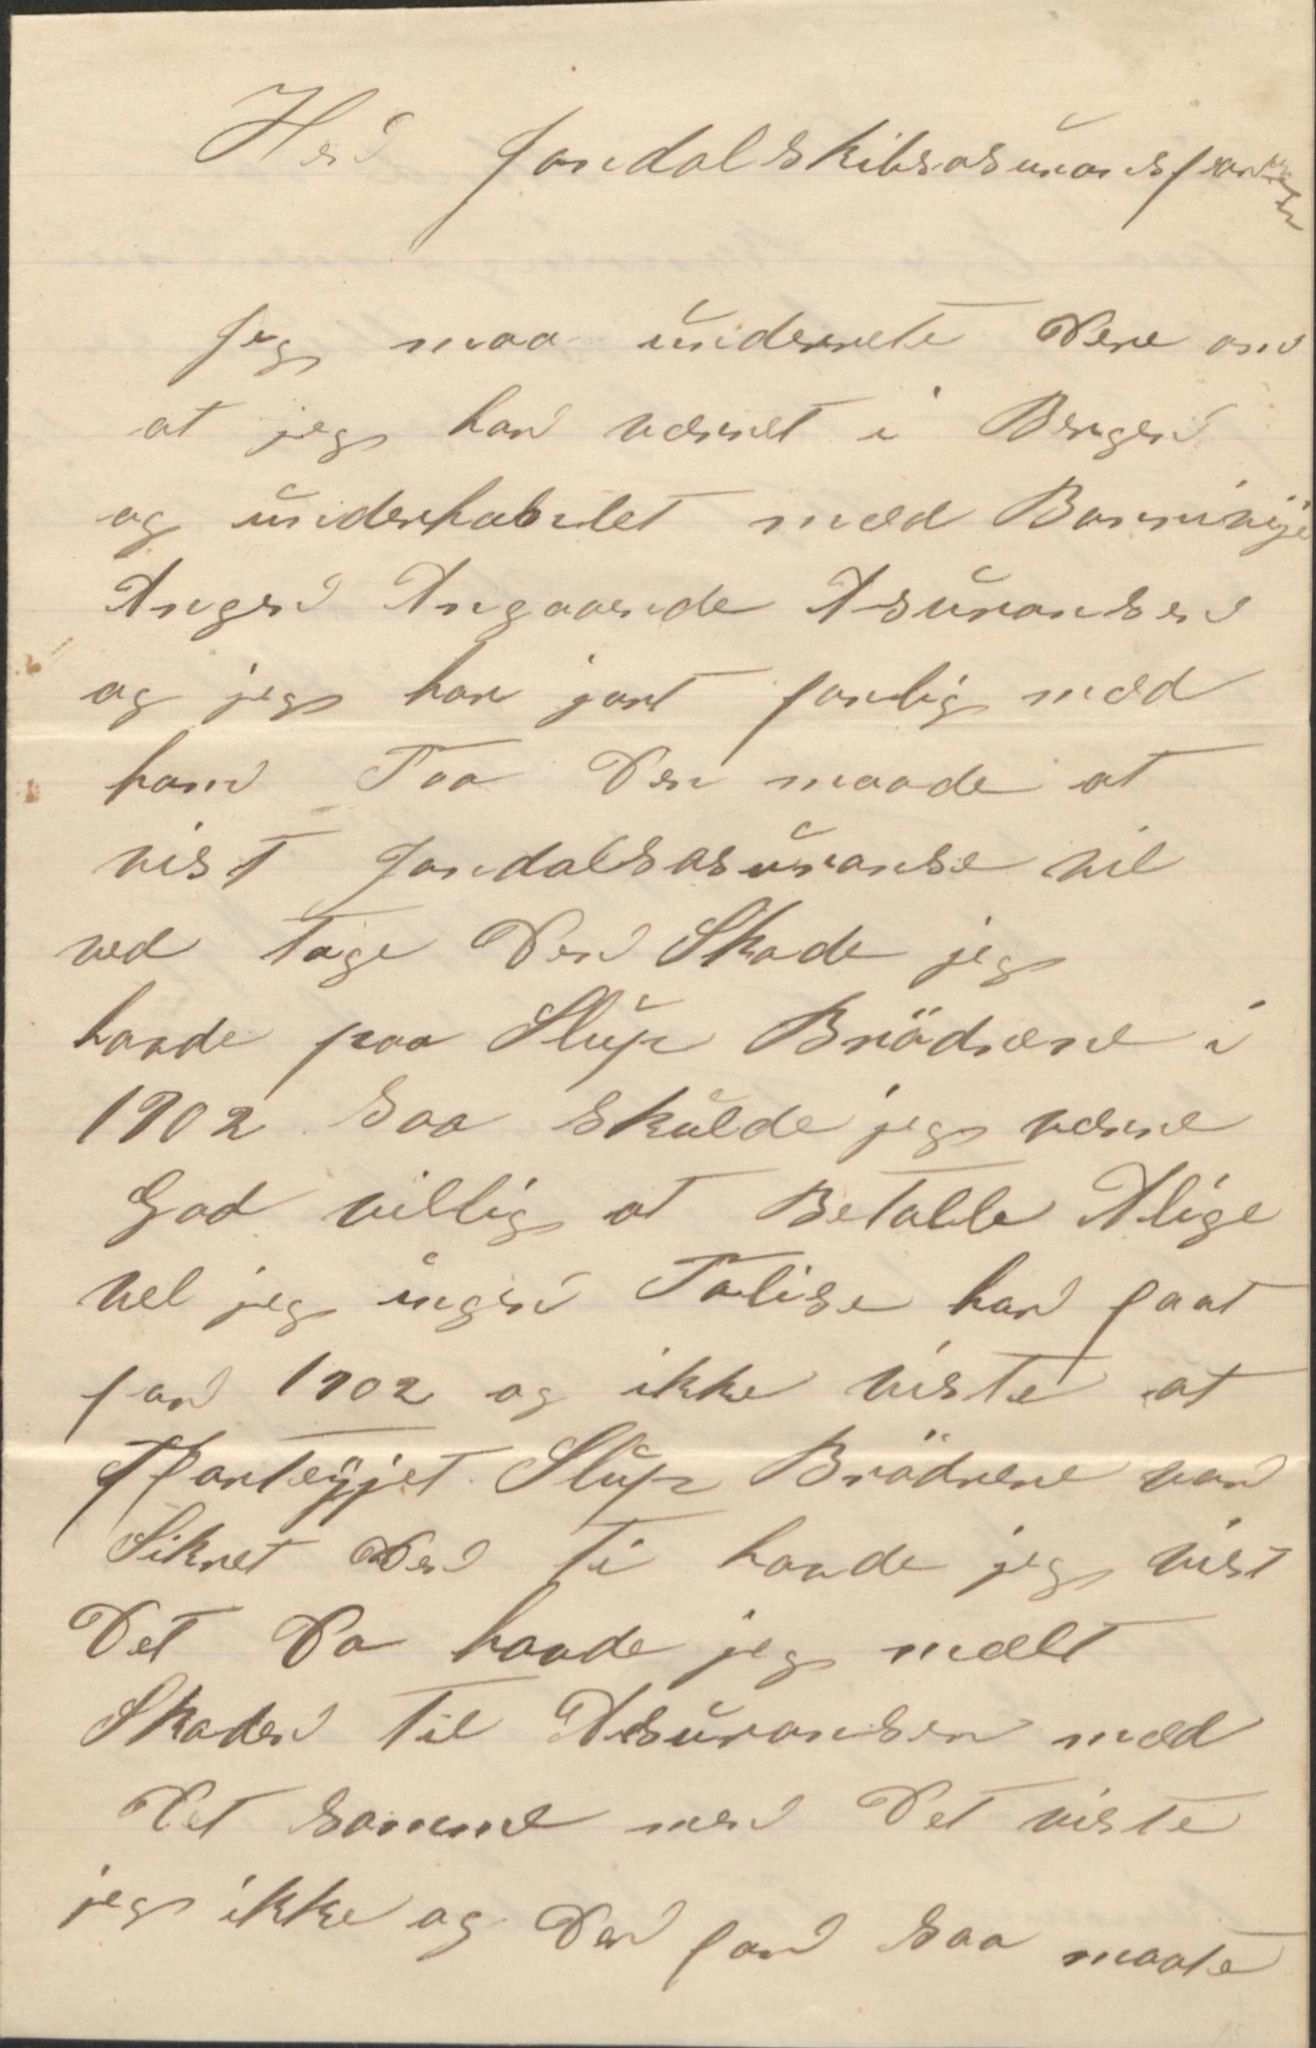 Her Jondalskibsasuransforening
Jeg maa underrete Dere om
at jeg har værret i Bergen
og underhabnlet med
Anger Angaaende Asuransen
og jeg har jort forlig med
ham Paa Den maade at
vist Jondalsasuranse vil
ved tage Den Skade jeg
havde paa Slup Brödrene i
1902 saa skulde jeg værre
God villig at Betalle Alige
vel jeg ingen Polise har faat
for 1902 og ikke viste at
Farteyjet Slup Brödrene var
Sikret Der ti havde jeg vist
Det Da havde jeg mælt
Skaden til Asuransen med
Det samme men Det viste
jeg ikke og Der for saa maate